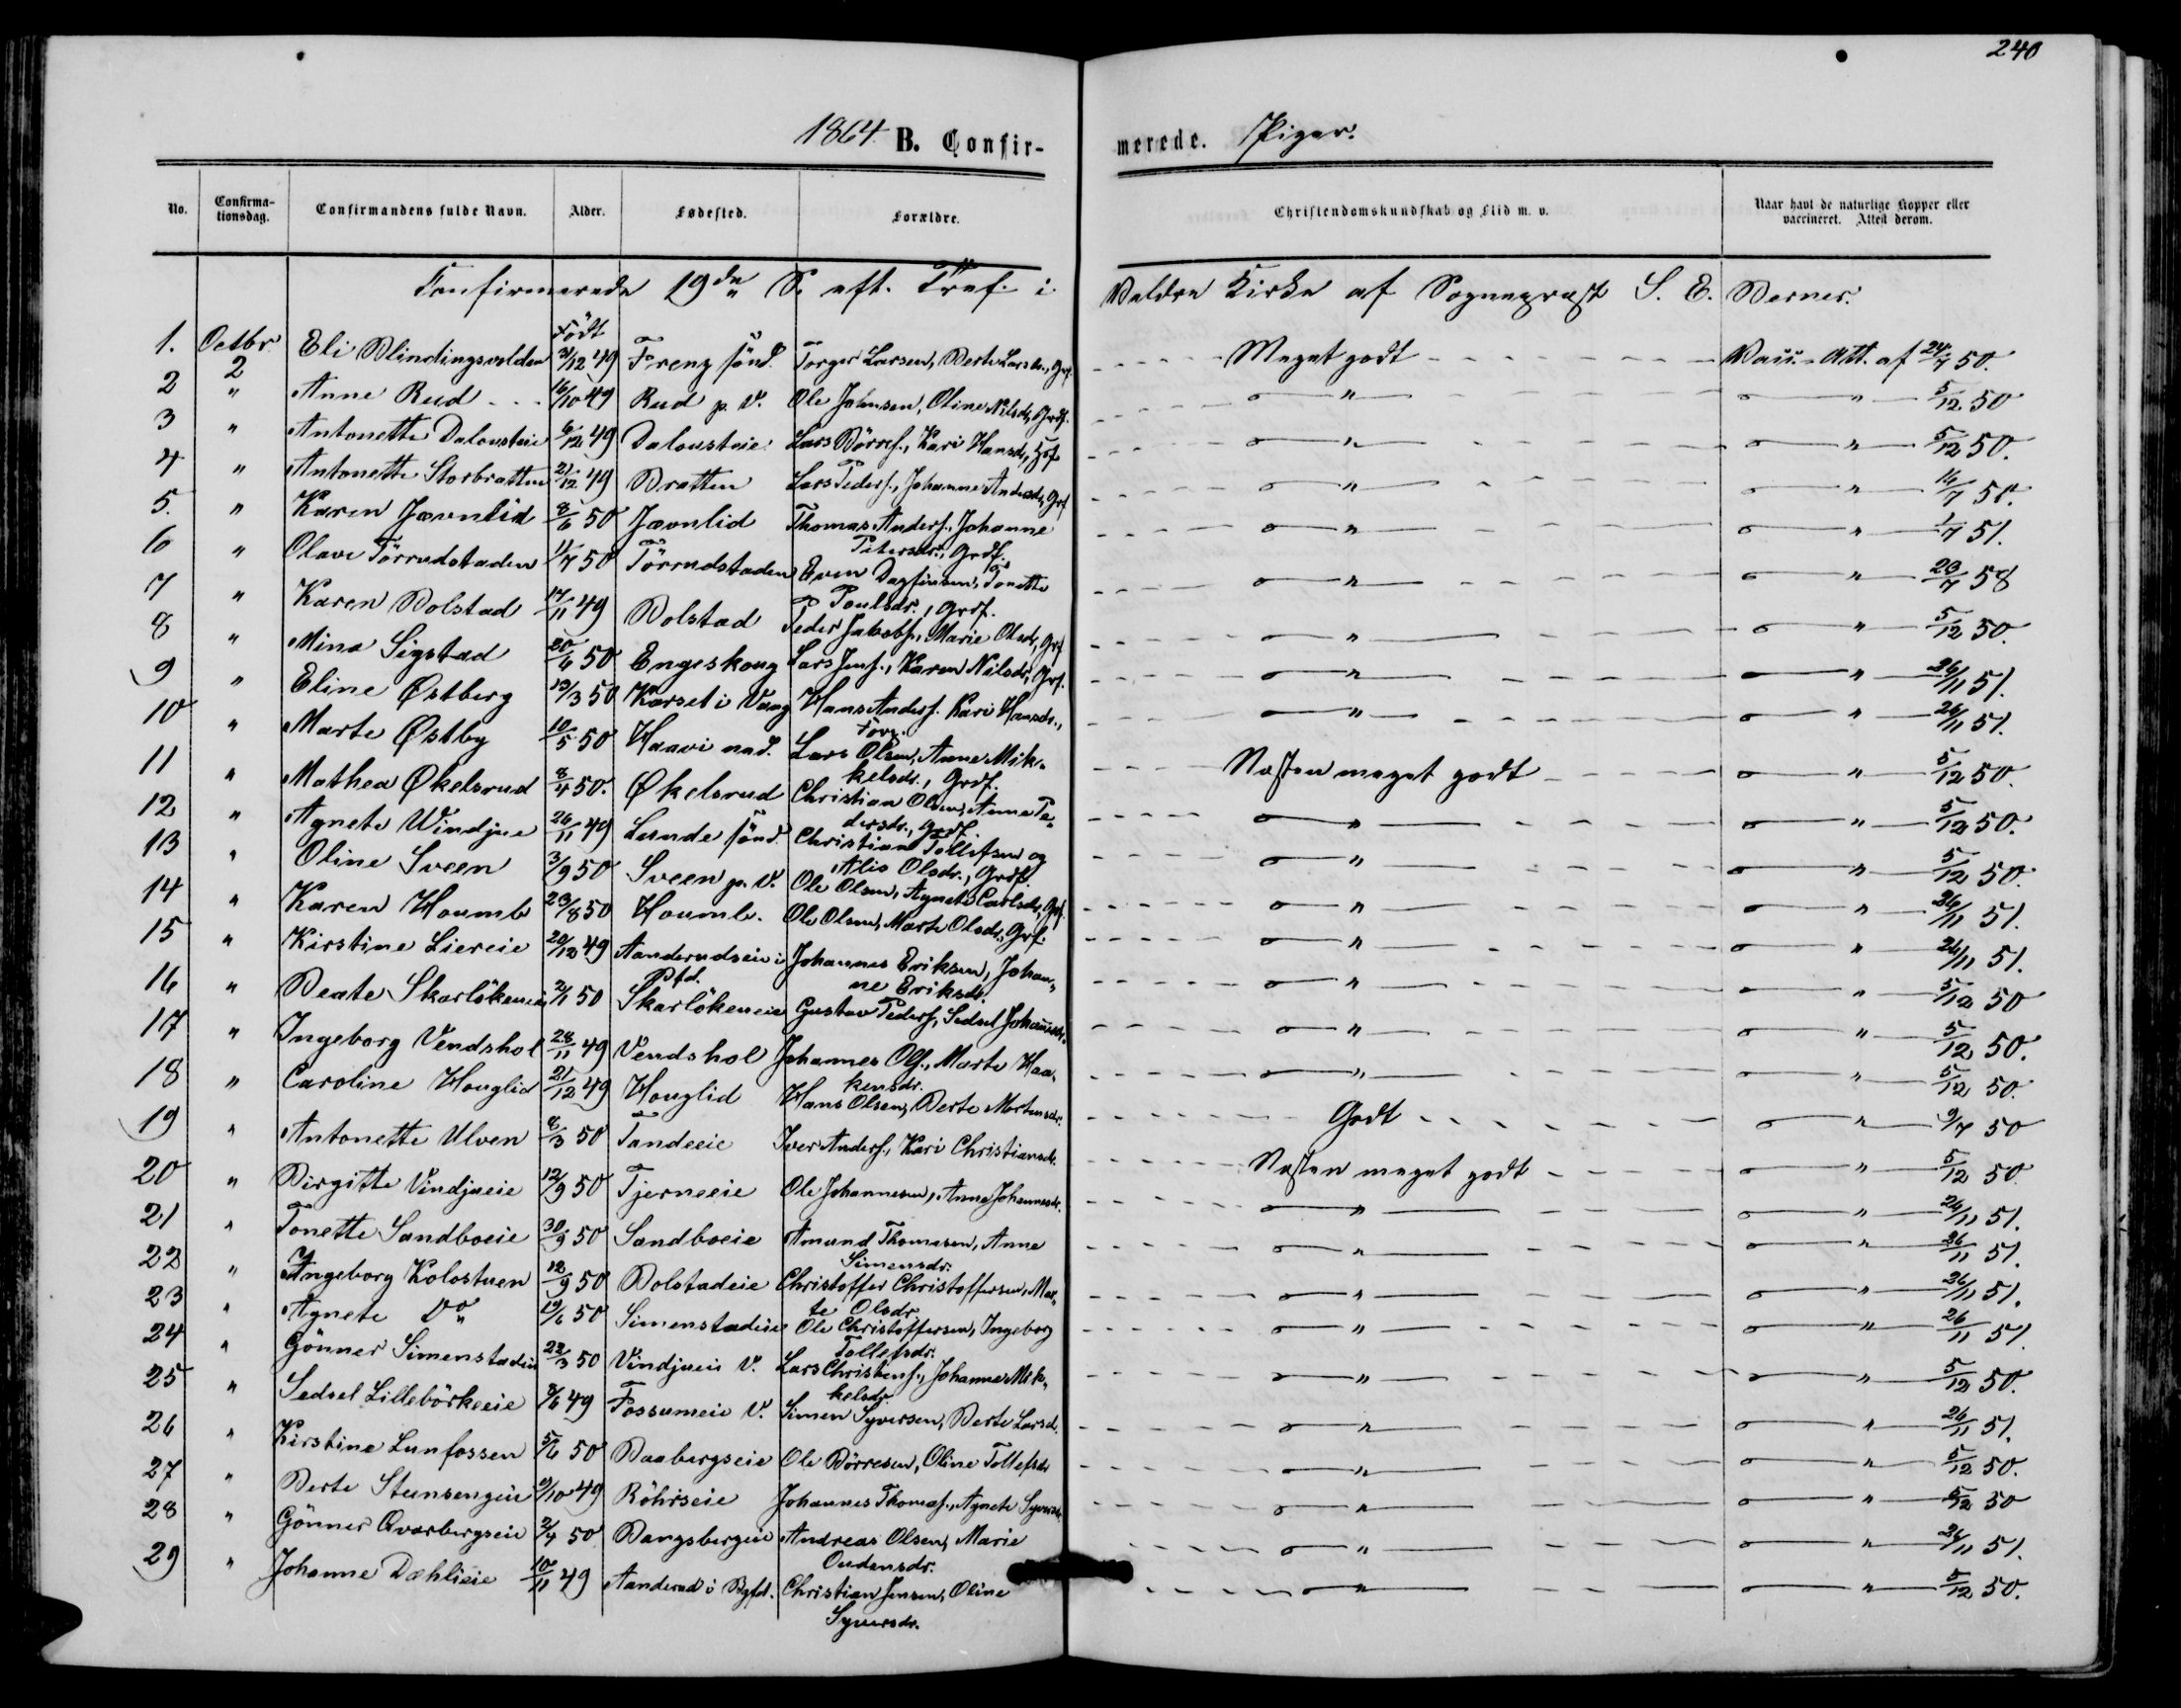 240
1864 B. Confirmerede. Piger.
No. Confirmationsdag. Confirmandens fulde Navn. Alder. Fødested. Forældre. Christendomskundskab og Flid m. v. Naar havt de naturlige Kopper eller vaccineret. Attest derom.
Confirmerede 19de S. eft. Tref. i Veldre Kirke af Sognepræst S. E. Berner.
Født
1. Octbr 2 Eli Blindingsvolden 31/12 49 Freng sönd. Torger Larsen, Berte Larsdr., Grf. Meget godt Vacc. Att. af 24/7 50.
2 " Anne Rud 16/10 49 Rud p. V. Ole Johnsen, Oline Nilsdr, Grdf. " " 5/12 50
3 " Antonette Dalousteie 6/12 49 Dalousteie Lars Börres., Kari Hansdr, Hsf " " 5/12 50.
4 " Antonette Storbratten 21/12 49 Bratten Lars Peders., Johanne Andersdr, Grf " " 16/7 50.
5. " Karen Jævnlid 8/6 50 Jævnlid Thomas Anders., Johanne Petersdr., Grdf. " " 1/7 51.
6 " Olave Törrudstaden 11/7 50 Törrudstaden Even Dagfinsen, Tonette Poulsdr., Grdf. " " 23/7 58
7 " Karen Bolstad 17/11 49 Bolstad Peder Jakobs., Marie Olsdr, Grf " " 5/12 50.
8 " Mina Sigstad 20/6 50 Engeskoug Lars Jens., Karen Nilsdr, Grf. " " 26/11 51.
9 " Eline Østberg 13/3 50 Karset i Vang Hans Anders. Kari Hansdr., Forp. " " 26/11 51.
10 " Marte Østby 10/5 50 Haavi nad. Lars Olsen, Anne Mikkelsdr., Grdf. Næsten meget godt " 5/12 50.
11 " Mathea Økelsrud 8/4 50. Økelsrud Christian Olsen, Anne Pedersdr., Grdf " " 5/12 50.
12 " Agnete Windjue 26/11 49 Lunde sönd. Christian Tollefsen og Alis Olsdr., Grdf. " " 5/12 50.
13 " Oline Sveen 3/9 50 Sveen p. V. Ole Olsen, Agnete Carlsdr, Grf. " " 26/11 51.
14 " Karen Houmb 23/8 50 Houmb. Ole Olsen, Marte Olsdr., Grf. " " 26/11 51.
15 " Kirstine Liereie 20/12 49 Aanderudseie i Pfd. Johannes Eriksen, Johanne Eriksdr. " " 5/12 50
16 " Beate Skarlökeneie 2/1 50 Skarlökeneie Gustav Peders, Sedsel Johannesdr. " " 5/12 50.
17 " Ingeborg Vendshol 28/11 49 Vendshol Johannes Ols., Marte Haakensdr. " " 5/12 50.
18 " Caroline Houglid 21/12 49 Houglid Hans Olsen, Berte Mortensdr. Godt " 9/7 50
19 " Antonette Ulven 8/3 50 Tandeeie Iver Anders., Kari Christiansdr. Næsten meget godt " 5/12 50
20 " Birgitte Vindjueie 12/9 50 Tjerneeie Ole Johannesen, Anne Johannesdr. " " 26/11 51.
21 " Tonette Sandboeie 30/9 50 Sandboeie Amund Thomasen, Anne Simensdr. " " 26/11 51.
22 " Ingeborg Kolostuen 12/9 50 Bolstadeie Christoffer Christoffersen, Marte Olsdr " " 26/11 51.
23 " Agnete Do 19/6 50 Simenstadeie Ole Christoffersen, Ingeborg Tollefsdr. " " 26/11 51
24 " Gönner Simenstadeie 22/3 50 Vindjueie V. Lars Christens., Johanne Mikkelsdr. " " 5/12 50.
25 " Sedsel Lillebörkeeie 8/6 49 Fossumeie V. Simen Syversen, Berte Larsd. " " 26/11 51.
26 " Kirstine Lunfossen 5/6 50 Baabergseie Ole Börresen, Oline Tollefsdr " " 5/12 50.
27 " Berte Steensengeie 9/10 49 Röhrseie Johannes Thomas., Agnete Syversdr. " " 5/12 50
28 " Gönner Qvarbergseie 2/4 50 Bangsbergeie Andreas Olsen, Marie Oudensdr. " " 26/11 51.
29 " Johanne Dæhlieie 10/11 49 Aanderud i Rgfd. Christian Jensen, Oline Syversdr. " " 5/12 50.